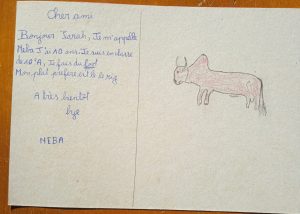 Cher ami
Bonjour Sarah, Je m'appelle
Neba J'ai 10 ans. Je suis en classe
de 10°A, Je fais du foot
Mon plat préféré est le riz
A très bientôt
bye
NEBA